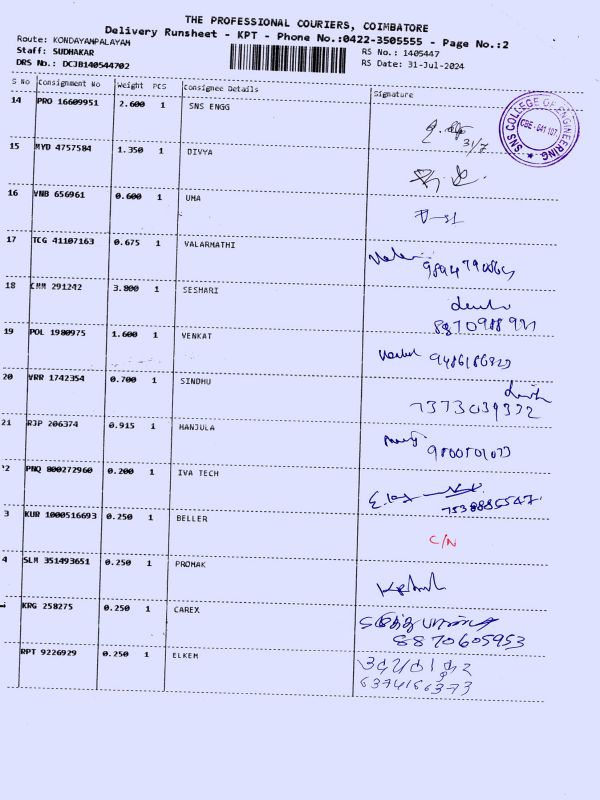 THE PROFESSIONAL COURIERS, COIMBATORE
Delivery Runsheet - KPT - Phone No.:0422-3505555 - Page No.:2
Route: KONDAYAMPALAYAM
Staff: SUDHAKAR
DRS No.: DCJB140544702
RS No.: 1405447
RS Date: 31-Jul-2024
S No Consignment No Weight PCS Consignee Details Signature
14 PRO 16609951 2.600 1 SNS ENGG
31/7
SNS COLLEGE OF ENGINEERING
CBE - 641 107
15 MYD 4757584 1.350 1 DIVYA
16 VNB 656961 0.600 1 UMA
17 TCG 41107163 0.675 1 VALARMATHI
18 CHM 291242 3.800 1 SESHARI
19 POL 1980975 1.600 1 VENKAT
20 VRR 1742354 0.700 1 SINDHU
7373039372
21 RJP 206374 0.915 1 MANJULA
PNQ 800272960 0.200 1 IVA TECH
7538885547
3 KUR 1000516693 0.250 1 BELLER
C/N
4 SLM 351493651 0.250 1 PROMAK
KRG 258275 0.250 1 CAREX
8870605953
RPT 9226929 0.250 1 ELKEM